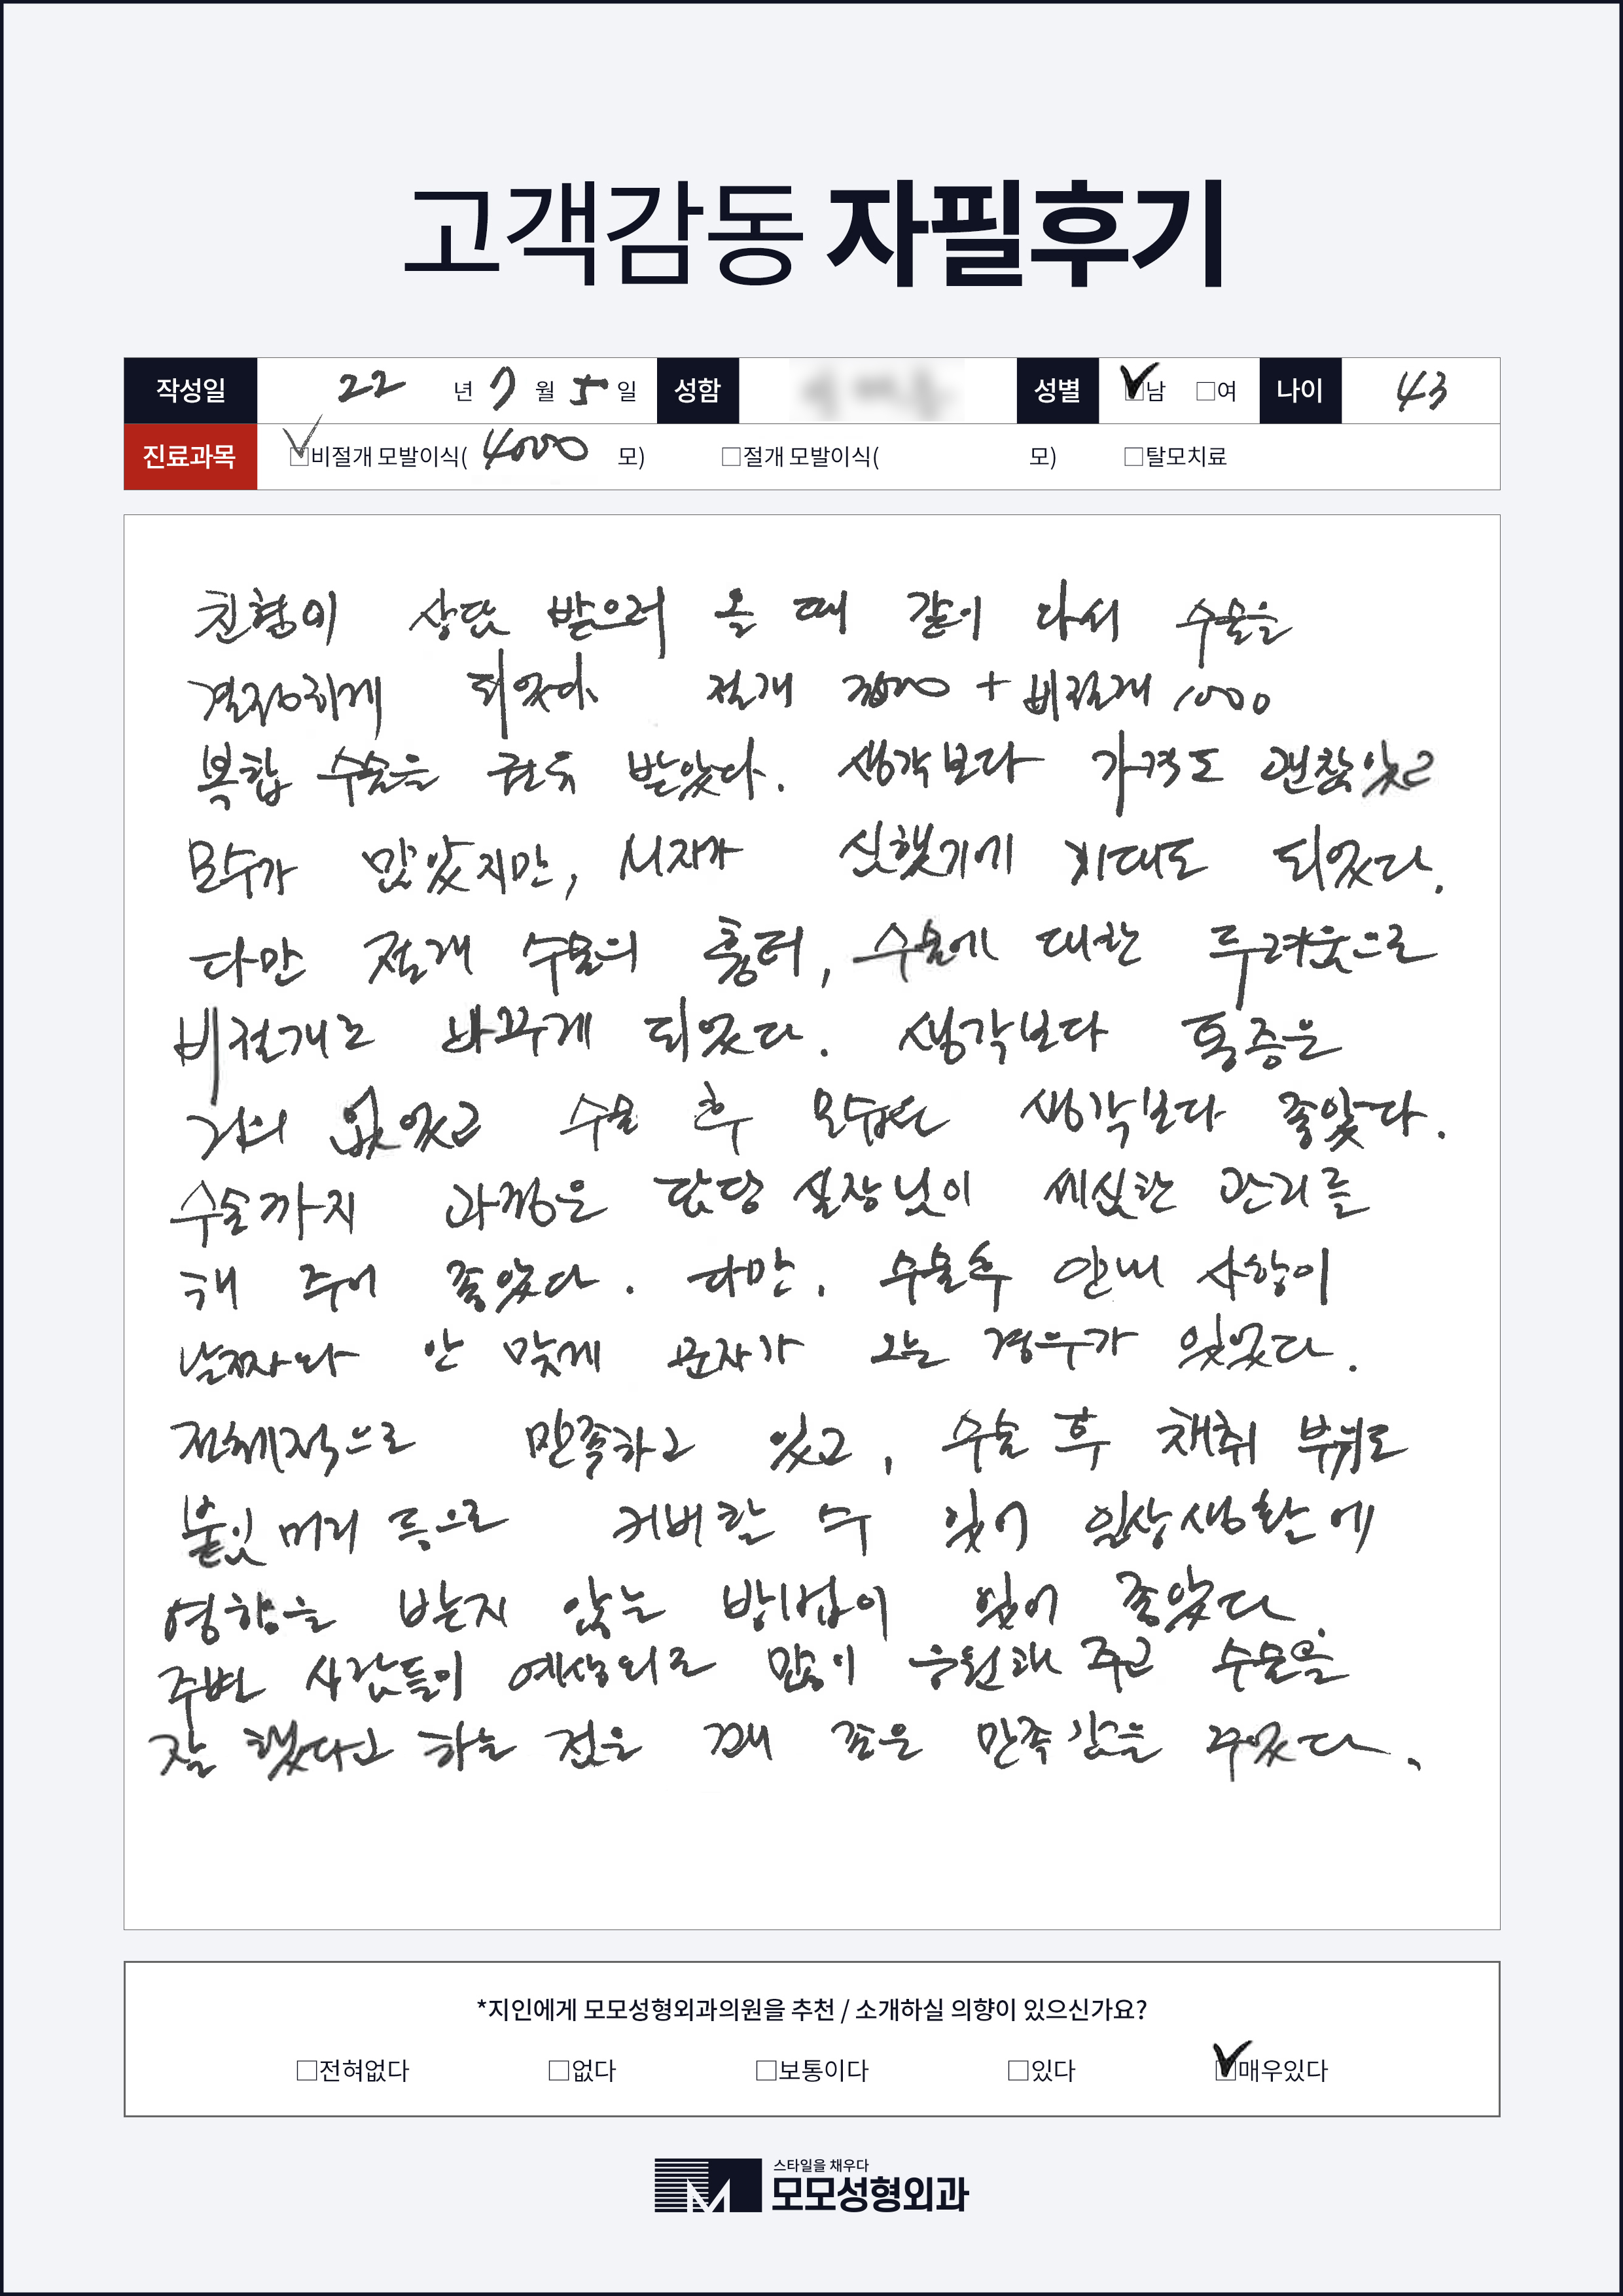 고객감동 자필후기
작성일 22 년 7 월 5 일 성함 성별 ☑남 □여 나이 43
진료과목 ☑비절개 모발이식( 4000 모) □절개 모발이식( 모) □탈모치료
친형이 상담 받으러 올 때 같이 다시 수술을
결정하게 되었다 절개 + 비절개 1000
복합 수술을 권유 받았다. 생각보다 가격도 괜찮았고
모수가 많았지만, 시작가 싯했기에 기대도 되었다.
다만 절개 수술의 흉터, 수술에 대한 두려움으로
비절개로 바꾸게 되었다. 생각보다 통증은
거의 없었고 수술 후 모습은 생각보다 좋았다.
수술까지 과정은 담당 실장님이 세심한 관리를
해 주어 좋았다. 다만, 수술후 안내 사항이
날짜와 안 맞게 문자가 오는 경우가 있었다.
전체적으로 만족하고 있고, 수술 후 채취 부위도
붙임 머리 등으로 커버할 수 있어 일상생활에
영향을 받지 않는 방법이 있어 좋았다.
주변 사람들이 예상외로 많이 응원해 주고 수술을
잘 했다고 하는 것은 꽤 좋은 만족감을 주었다.
*지인에게 모모성형외과의원을 추천 / 소개하실 의향이 있으신가요?
□전혀없다 □없다 □보통이다 □있다 ☑매우있다
스타일을 채우다
모모성형외과